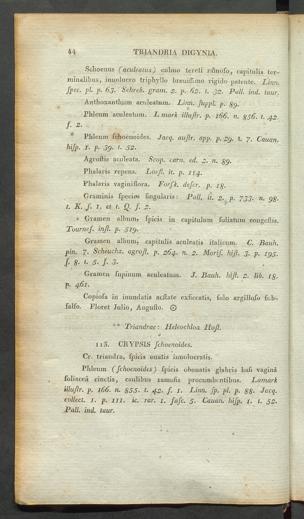 44 TRIANDRIA DIGYNIA.
Schoenus (aculeatus) culmo tereti ramoso, capitulis ter-
minalibus, involucro triphyllo brevissimo rigido patente. Linn.
spec. pl. p. 63. Schreb. gram. 2. p. 62. t. 32. Pall. ind. taur.
Anthoxanthum aculeatum. Linn. suppl. p. 89.
Phleum aculeatum. Lamark illustr. p. 166. n. 856. t. 42
f. 2.
* Phleum schoenoides. Jacq. austr. app. p. 29. t. 7. Cavan.
hisp. 1. p. 39. t. 52.
Agrostis aculeata. Scop. carn. ed. 2. n. 89.
Phalaris repens. Loefl. it. p. 114.
Phalaris vaginiflora. Forsk. descr. p. 18.
Graminis species singularis: Pall. it. 2. p. 733. n. 98.
t. K. f. 1. et t. Q. f. 2.
Gramen album, spicis in capitulum foliatum congestis.
Tournef. inst. p. 519.
Gramen album, capitulis aculeatis italicum. C. Bauh.
pin. 7. Scheuchz. agrost. p. 264. n. 2. Moris. hist. 3. p. 195.
s. 8. t. 5. f. 3.
Gramen supinum aculeatum. J. Bauh. hist. 2. lib. 18.
p. 461.
Copiosa in inundatis aestate exsiccatis, solo argilloso sub-
salso. Floret Julio, Augusto. ☉
** Triandrae: Heleochloa Host.
113. CRYPSIS schoenoides.
Cr. triandra, spicis ovatis involucratis.
Phleum (schoenoides) spicis obovatis glabris basi vagina
foliacea cinctis, caulibus ramosis procumbentibus. Lamark
illustr. p. 166. n. 855. t. 42. f. 1. Linn. sp. pl. p. 88. Jacq.
collect. 1. p. 111. ic. rar. 1. fasc. 5. Cavan. hisp. 1. t. 52.
Pall. ind. taur.